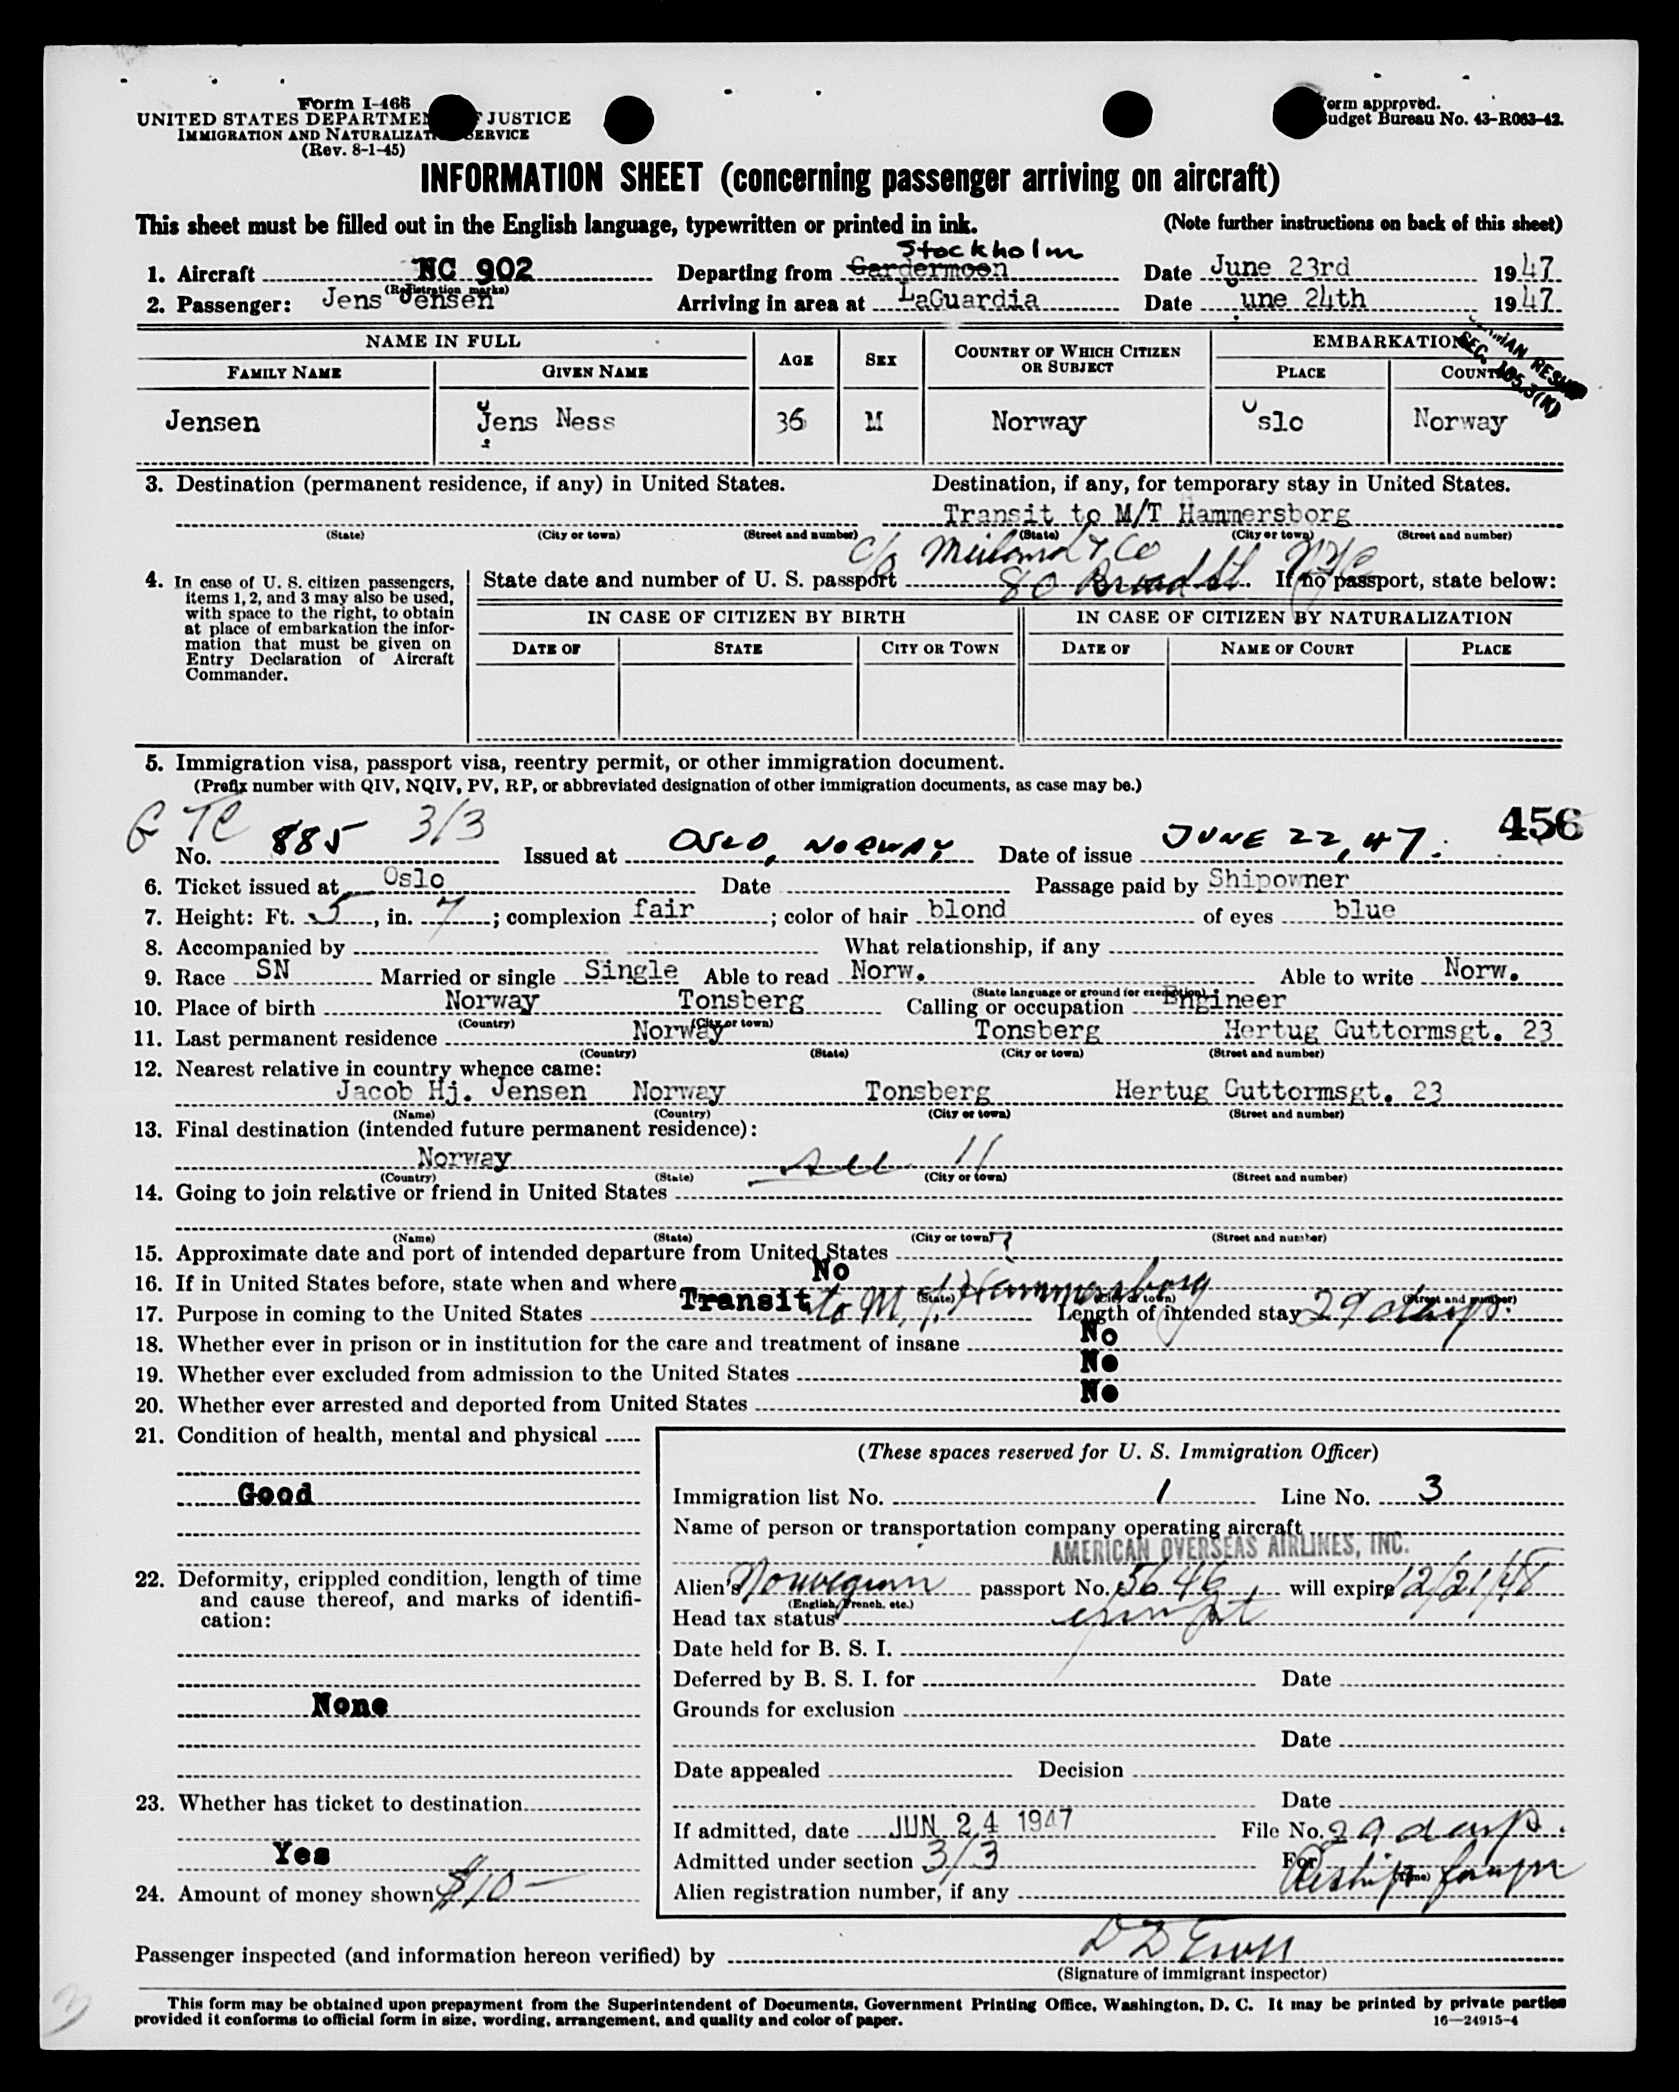 Form I-466
UNITED STATES DEPARTMENT OF JUSTICE
IMMIGRATION AND NATURALIZATION SERVICE
(Rev. 8-1-45)
Form approved.
Budget Bureau No. 43-R063-42.
INFORMATION SHEET (concerning passenger arriving on aircraft)
This sheet must be filled out in the English language, typewritten or printed in ink. (Note further instructions on back of this sheet)
Stockholm
1. Aircraft NC 902 Departing from Gardermoen Date June 23rd 1947
(Registration marks)
2. Passenger: Jens Jensen Arriving in area at LaGuardia Date June 24th 1947
NAME IN FULL AGE SEX COUNTRY OF WHICH CITIZEN OR SUBJECT EMBARKATION
FAMILY NAME GIVEN NAME PLACE COUNTRY
SEC. 105.3(K)
Jensen Jens Ness 36 M Norway Oslo Norway
3. Destination (permanent residence, if any) in United States. Destination, if any, for temporary stay in United States.
Transit to M/T Hammersborg
(State) (City or town) (Street and number) (State) (City or town) (Street and number)
c/o & Co NYC
80 Broad St
4. In case of U. S. citizen passengers, items 1, 2, and 3 may also be used, with space to the right, to obtain at place of embarkation the information that must be given on Entry Declaration of Aircraft Commander.
State date and number of U. S. passport If no passport, state below:
IN CASE OF CITIZEN BY BIRTH IN CASE OF CITIZEN BY NATURALIZATION
DATE OF STATE CITY OR TOWN DATE OF NAME OF COURT PLACE
5. Immigration visa, passport visa, reentry permit, or other immigration document.
(Prefix number with QIV, NQIV, PV, RP, or abbreviated designation of other immigration documents, as case may be.)
G TC 3/3 456
No. 885 Issued at OSLO, NORWAY Date of issue JUNE 22, 47.
6. Ticket issued at Oslo Date Passage paid by Shipowner
7. Height: Ft. 5, in. 7; complexion fair; color of hair blond of eyes blue
8. Accompanied by What relationship, if any
9. Race SN Married or single Single Able to read Norw. Able to write Norw.
(State language or ground for exemption)
10. Place of birth Norway Tonsberg Calling or occupation Engineer
(Country) (City or town)
11. Last permanent residence Norway Tonsberg Hertug Guttormsgt. 23
(Country) (State) (City or town) (Street and number)
12. Nearest relative in country whence came:
Jacob Hj. Jensen Norway Tonsberg Hertug Guttormsgt. 23
(Name) (Country) (City or town) (Street and number)
13. Final destination (intended future permanent residence):
Norway see 11
(Country) (State) (City or town) (Street and number)
14. Going to join relative or friend in United States
(Name) (State) (City or town) (Street and number)
15. Approximate date and port of intended departure from United States ?
16. If in United States before, state when and where No
(State) (City or town) (Street and number)
17. Purpose in coming to the United States Transit to M. T. Hammersborg Length of intended stay 29 days.
18. Whether ever in prison or in institution for the care and treatment of insane No
19. Whether ever excluded from admission to the United States No
20. Whether ever arrested and deported from United States No
21. Condition of health, mental and physical
Good
22. Deformity, crippled condition, length of time and cause thereof, and marks of identification:
None
23. Whether has ticket to destination
Yes
24. Amount of money shown $10-
(These spaces reserved for U. S. Immigration Officer)
Immigration list No. 1 Line No. 3
Name of person or transportation company operating aircraft
AMERICAN OVERSEAS AIRLINES, INC.
Alien's Norwegian passport No. 5646, will expire 12/21/48
(English, French, etc.)
Head tax status exempt
Date held for B. S. I.
Deferred by B. S. I. for Date
Grounds for exclusion
Date
Date appealed Decision
Date
If admitted, date JUN 24 1947 File No. 29 days.
Admitted under section 3/3 For Reship foreign
(Time)
Alien registration number, if any
Passenger inspected (and information hereon verified) by
(Signature of immigrant inspector)
3
This form may be obtained upon prepayment from the Superintendent of Documents, Government Printing Office, Washington, D. C. It may be printed by private parties
provided it conforms to official form in size, wording, arrangement, and quality and color of paper. 16—24915-4